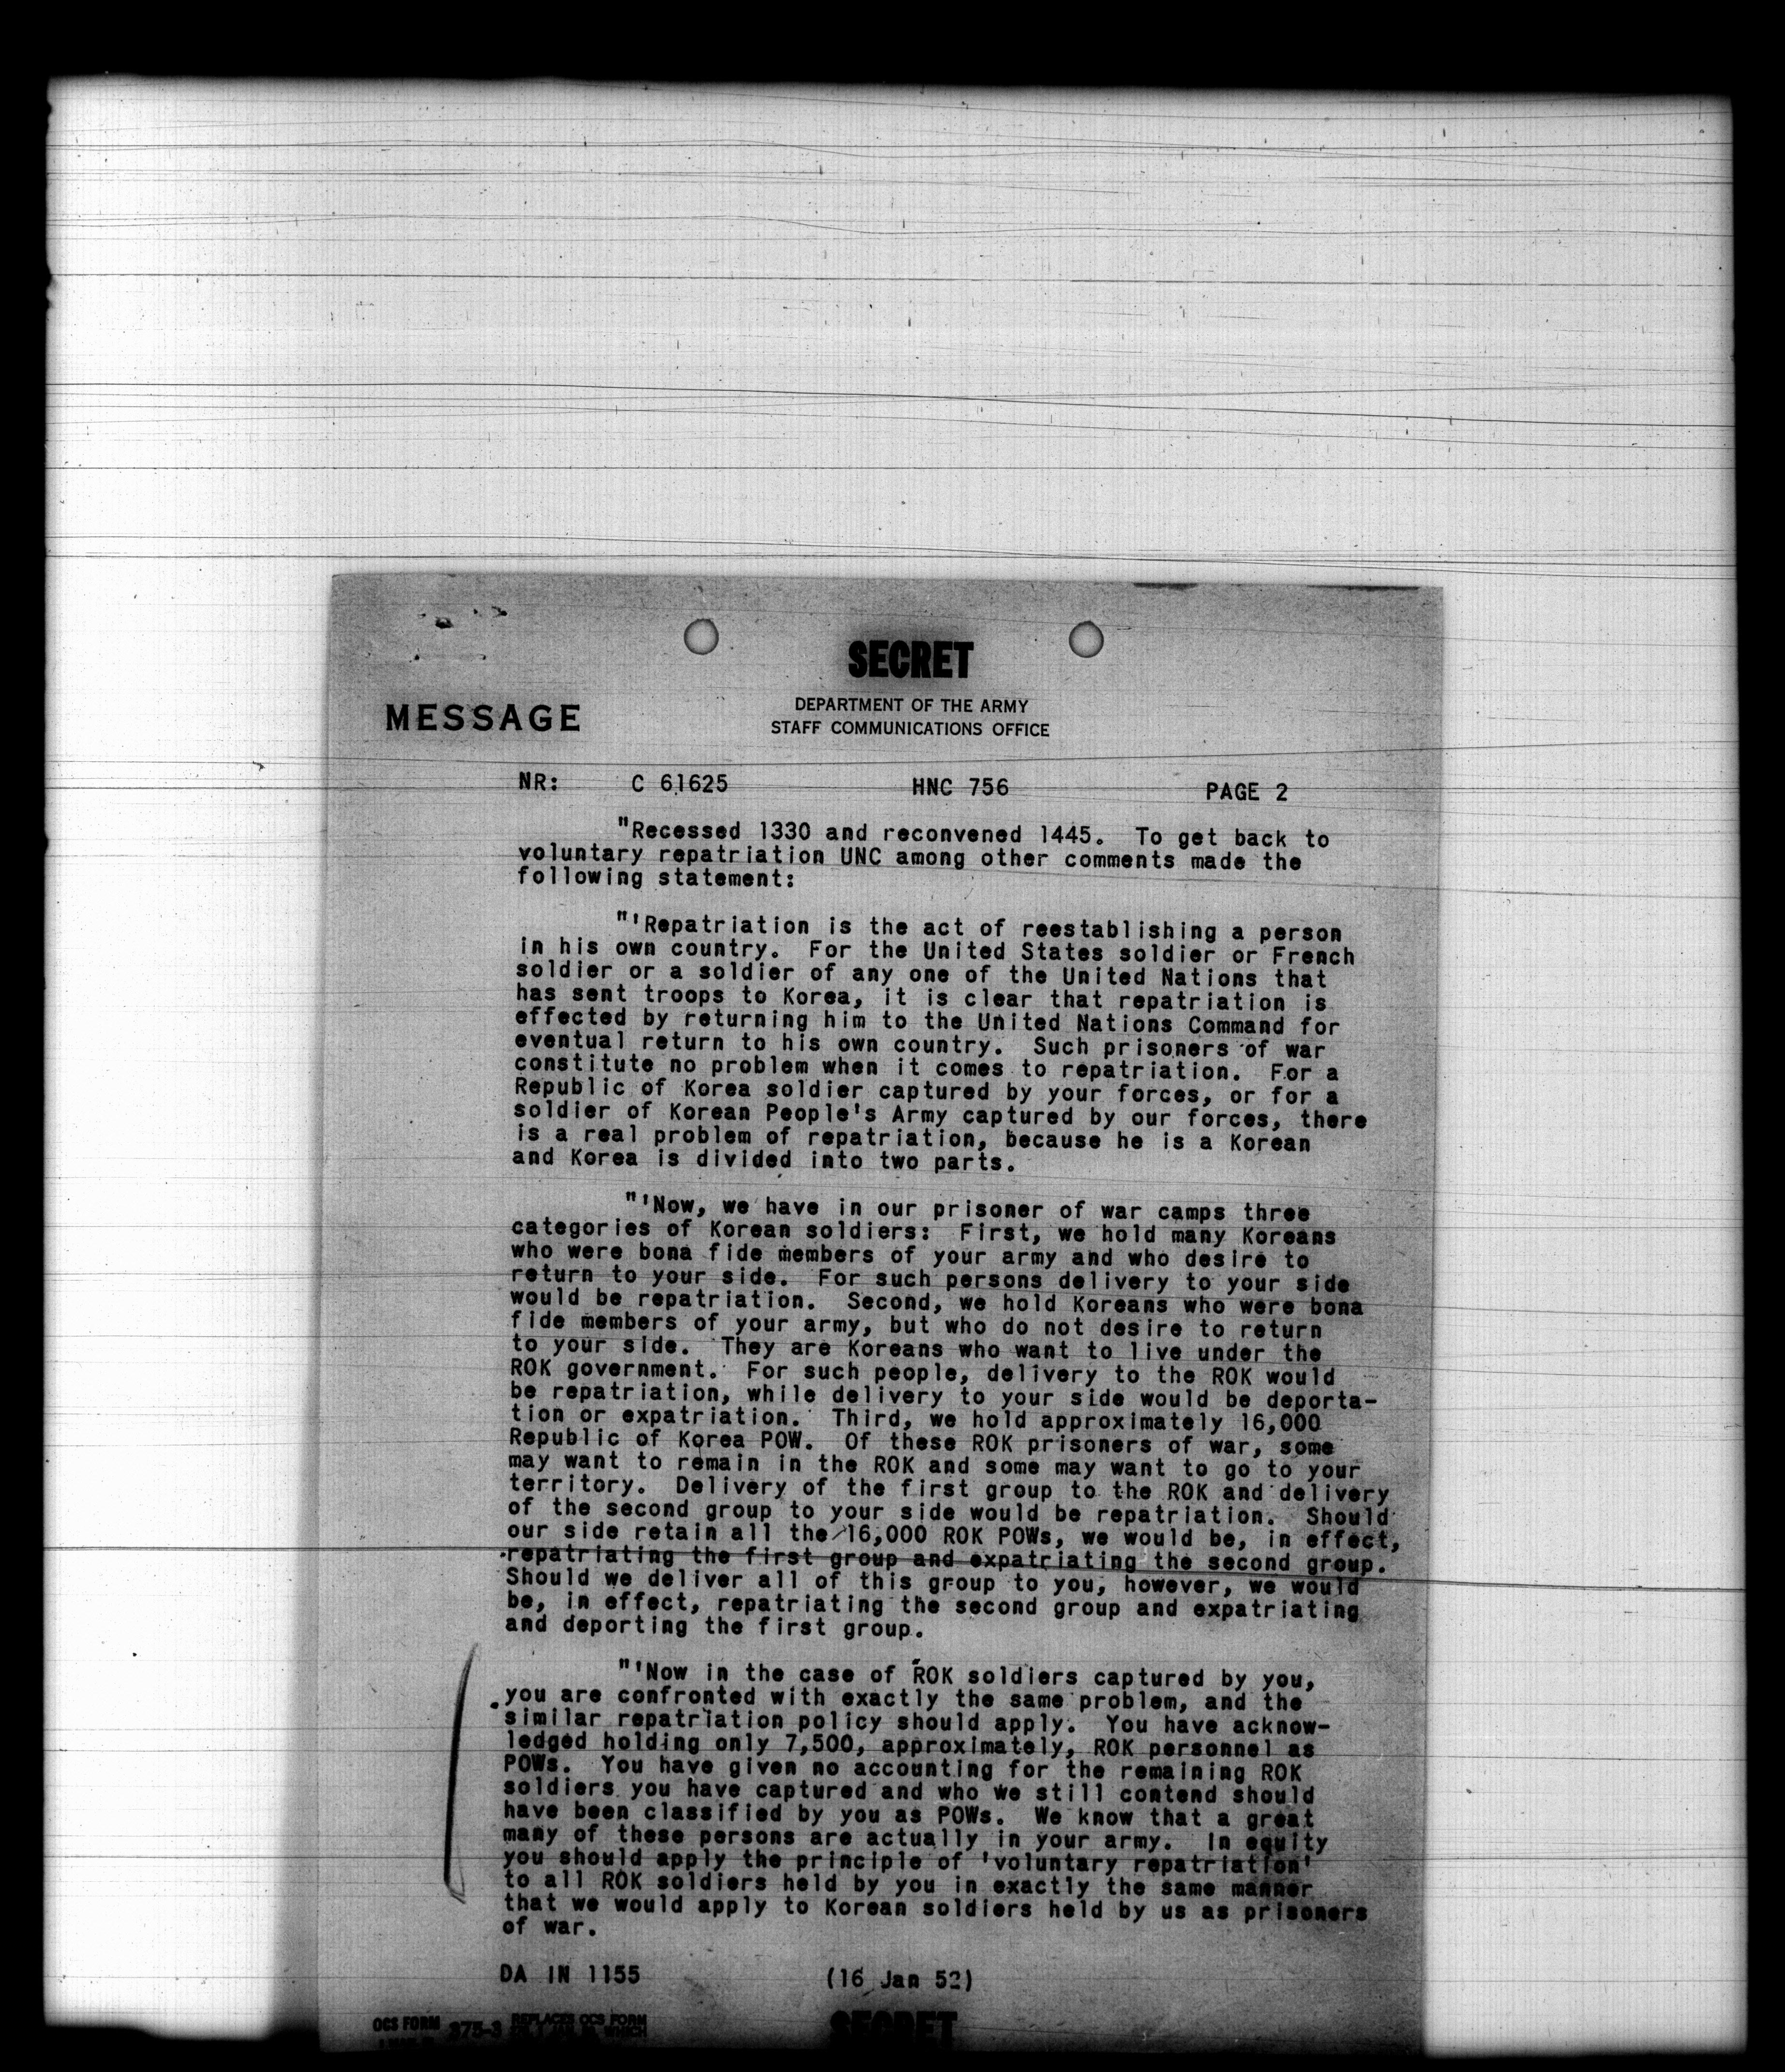 SECRET
DEPARTMENT OF THE ARMY
STAFF COMMUNICATIONS OFFICE
MESSAGE
NR: C 61625 HNC 756 PAGE 2
"Recessed 1330 and reconvened 1445. To get back to
voluntary repatriation UNC among other comments made the
following statement:
"'Repatriation is the act of reestablishing a person
in his own country. For the United States soldier or French
soldier or a soldier of any one of the United Nations that
has sent troops to Korea, it is clear that repatriation is
effected by returning him to the United Nations Command for
eventual return to his own country. Such prisoners of war
constitute no problem when it comes to repatriation. For a
Republic of Korea soldier captured by your forces, or for a
soldier of Korean People's Army captured by our forces, there
is a real problem of repatriation, because he is a Korean
and Korea is divided into two parts.
"'Now, we have in our prisoner of war camps three
categories of Korean soldiers: First, we hold many Koreans
who were bona fide members of your army and who desire to
return to your side. For such persons delivery to your side
would be repatriation. Second, we hold Koreans who were bona
fide members of your army, but who do not desire to return
to your side. They are Koreans who want to live under the
ROK government. For such people, delivery to the ROK would
be repatriation, while delivery to your side would be deporta-
tion or expatriation. Third, we hold approximately 16,000
Republic of Korea POW. Of these ROK prisoners of war, some
may want to remain in the ROK and some may want to go to your
territory. Delivery of the first group to the ROK and delivery
of the second group to your side would be repatriation. Should
our side retain all the 16,000 ROK POWs, we would be, in effect,
repatriating the first group and expatriating the second group.
Should we deliver all of this group to you, however, we would
be, in effect, repatriating the second group and expatriating
and deporting the first group.
"'Now in the case of ROK soldiers captured by you,
you are confronted with exactly the same problem, and the
similar repatriation policy should apply. You have acknow-
ledged holding only 7,500, approximately, ROK personnel as
POWs. You have given no accounting for the remaining ROK
soldiers you have captured and who we still contend should
have been classified by you as POWs. We know that a great
many of these persons are actually in your army. In equity
you should apply the principle of 'voluntary repatriation'
to all ROK soldiers held by you in exactly the same manner
that we would apply to Korean soldiers held by us as prisoners
of war.
DA IN 1155 (16 Jan 52)
OCS FORM 375-3 REPLACES OCS FORM
WHICH
SECRET